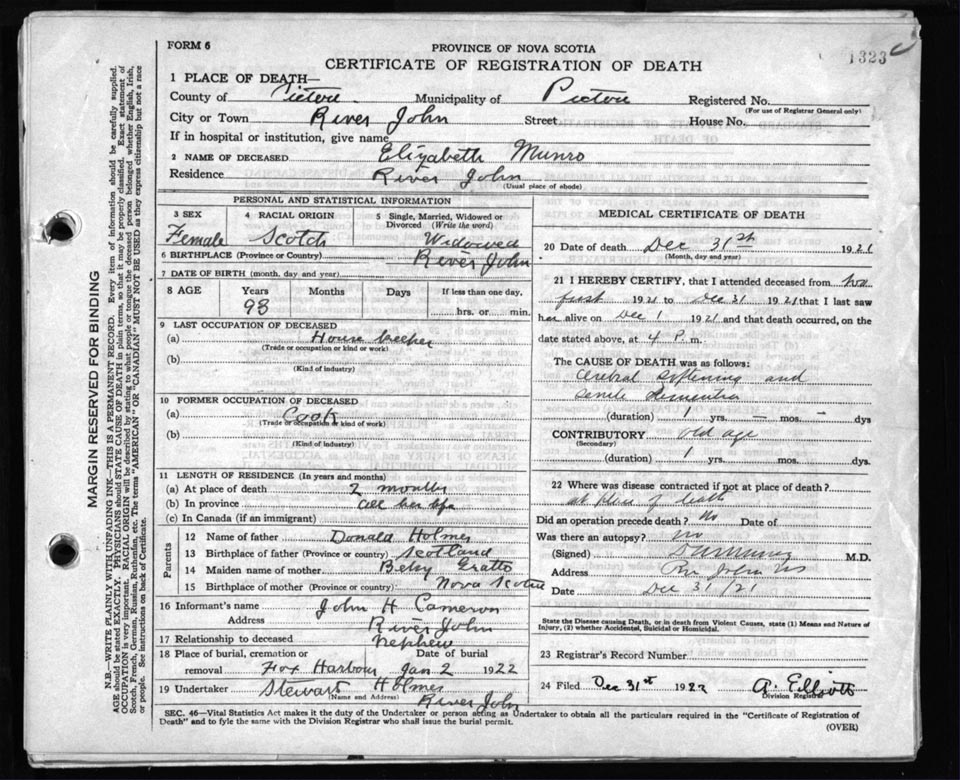 1323
FORM 6
PROVINCE OF NOVA SCOTIA
CERTIFICATE OF REGISTRATION OF DEATH
1 PLACE OF DEATH—
County of Pictou Municipality of Pictou Registered No.
(For use of Registrar General only)
City or Town River John Street House No.
If in hospital or institution, give name
2 NAME OF DECEASED Elizabeth Munro
Residence River John
(Usual place of abode)
PERSONAL AND STATISTICAL INFORMATION
3 SEX 4 RACIAL ORIGIN 5 Single, Married, Widowed or Divorced (Write the word)
Female Scotch Widowed
6 BIRTHPLACE (Province or Country) River John
7 DATE OF BIRTH (month, day and year)
8 AGE Years Months Days If less than one day,
93 hrs. or min.
9 LAST OCCUPATION OF DECEASED
(a) House keeper
(Trade or occupation or kind or work)
(b)
(Kind of industry)
10 FORMER OCCUPATION OF DECEASED
(a) Cook
(Trade or occupation or kind of work)
(b)
(Kind of industry)
11 LENGTH OF RESIDENCE (In years and months)
(a) At place of death 2 months
(b) In province all her life
(c) In Canada (if an immigrant)
Parents
12 Name of father Donald Holmes
13 Birthplace of father (Province or country) Scotland
14 Maiden name of mother Betsy Gratto
15 Birthplace of mother (Province or country) Nova Scotia
16 Informant's name John H Cameron
Address River John
17 Relationship to deceased Nephew
18 Place of burial, cremation or removal Date of burial
Fox Harbour Jan 2 1922
19 Undertaker Stewart Holmes
(Name and Address) River John
MEDICAL CERTIFICATE OF DEATH
20 Date of death Dec 31st 1921
(Month, day and year)
21 I HEREBY CERTIFY, that I attended deceased from Nov
first 1921 to Dec 31 1921 that I last saw
her alive on Dec 1 1921 and that death occurred, on the
date stated above, at 4 P. m.
The CAUSE OF DEATH was as follows:
Cerebral Softening and
Senile dementia
(duration) 1 yrs. — mos. — dys
CONTRIBUTORY old age
(Secondary)
(duration) 1 yrs. mos. dys.
22 Where was disease contracted if not at place of death?
at place of death
Did an operation precede death? No Date of
Was there an autopsy? no
(Signed) M.D.
Address Riv John NS
Date Dec 31/21
State the Disease causing Death, or in death from Violent Causes, state (1) Means and Nature of
Injury, (2) whether Accidental, Suicidal or Homicidal.
23 Registrar's Record Number
24 Filed Dec 31st 1922 A. Elliott
Division Registrar
SEC. 46—Vital Statistics Act makes it the duty of the Undertaker or person acting as Undertaker to obtain all the particulars required in the "Certificate of Registration of
Death" and to fyle the same with the Division Registrar who shall issue the burial permit.
(OVER)
MARGIN RESERVED FOR BINDING
N.B.—WRITE PLAINLY WITH UNFADING INK—THIS IS A PERMANENT RECORD. Every item of information should be carefully supplied.
AGE should be stated EXACTLY. PHYSICIANS should STATE CAUSE OF DEATH in plain terms, so that it may be properly classified. Exact statement of
OCCUPATION is very important. RACIAL ORIGIN will be described by stating to what people or tongue the deceased person belonged whether English, Irish,
Scotch, French, German, Russian, Ruthenian, etc. The terms "AMERICAN" or "CANADIAN" MUST NOT BE USED as they express citizenship but not a race
or people. See instructions on back of Certificate.